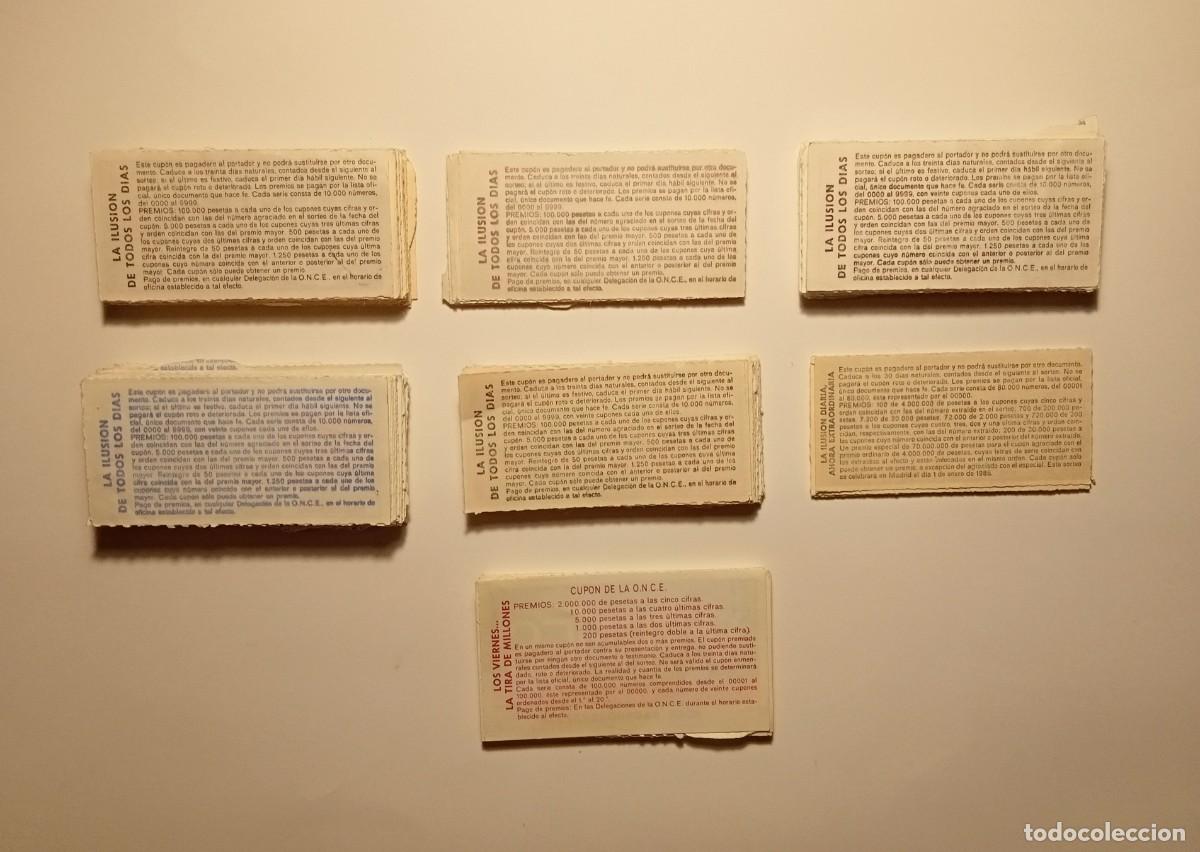 LA ILUSION
DE TODOS LOS DIAS
Este cupón es pagadero al portador y no podrá sustituirse por otro docu-
mento. Caduca a los treinta días naturales, contados desde el siguiente al
sorteo; si el último es festivo, caduca el primer día hábil siguiente. No se
pagará el cupón roto o deteriorado. Los premios se pagan por la lista ofi-
cial, único documento que hace fe. Cada serie consta de 10.000 números,
del 0000 al 9999.
PREMIOS: 100.000 pesetas a cada uno de los cupones cuyas cifras y or-
den coincidan con las del número agraciado en el sorteo de la fecha del
cupón. 5.000 pesetas a cada uno de los cupones cuyas tres últimas cifras
y orden coincidan con las del premio mayor. 500 pesetas a cada uno de
los cupones cuyas dos últimas cifras y orden coincidan con las del premio
mayor. Reintegro de 50 pesetas a cada uno de los cupones cuya última
cifra coincida con la del premio mayor. 1.250 pesetas a cada uno de los
cupones cuyo número coincida con el anterior o posterior al del premio
mayor. Cada cupón sólo puede obtener un premio.
Pago de premios, en cualquier Delegación de la O.N.C.E., en el horario de
oficina establecido a tal efecto.
LA ILUSION
DE TODOS LOS DIAS
Este cupón es pagadero al portador y no podrá sustituirse por otro docu-
mento. Caduca a los treinta días naturales, contados desde el siguiente al
sorteo; si el último es festivo, caduca el primer día hábil siguiente. No se
pagará el cupón roto o deteriorado. Los premios se pagan por la lista ofi-
cial, único documento que hace fe. Cada serie consta de 10.000 números,
del 0000 al 9999.
PREMIOS: 100.000 pesetas a cada uno de los cupones cuyas cifras y or-
den coincidan con las del número agraciado en el sorteo de la fecha del
cupón. 5.000 pesetas a cada uno de los cupones cuyas tres últimas cifras
y orden coincidan con las del premio mayor. 500 pesetas a cada uno de
los cupones cuyas dos últimas cifras y orden coincidan con las del premio
mayor. Reintegro de 50 pesetas a cada uno de los cupones cuya última
cifra coincida con la del premio mayor. 1.250 pesetas a cada uno de los
cupones cuyo número coincida con el anterior o posterior al del premio
mayor. Cada cupón sólo puede obtener un premio.
Pago de premios, en cualquier Delegación de la O.N.C.E., en el horario de
oficina establecido a tal efecto.
34
LA ILUSION
DE TODOS LOS DIAS
Este cupón es pagadero al portador y no podrá sustituirse por otro docu-
mento. Caduca a los treinta días naturales, contados desde el siguiente al
sorteo; si el último es festivo, caduca el primer día hábil siguiente. No se
pagará el cupón roto o deteriorado. Los premios se pagan por la lista ofi-
cial, único documento que hace fe. Cada serie consta de 10.000 números,
del 0000 al 9999, con veinte cupones cada uno de ellos.
PREMIOS: 100.000 pesetas a cada uno de los cupones cuyas cifras y or-
den coincidan con las del número agraciado en el sorteo de la fecha del
cupón. 5.000 pesetas a cada uno de los cupones cuyas tres últimas cifras
y orden coincidan con las del premio mayor. 500 pesetas a cada uno de
los cupones cuyas dos últimas cifras y orden coincidan con las del premio
mayor. Reintegro de 50 pesetas a cada uno de los cupones cuya última
cifra coincida con la del premio mayor. 1.250 pesetas a cada uno de los
cupones cuyo número coincida con el anterior o posterior al del premio
mayor. Cada cupón sólo puede obtener un premio.
Pago de premios, en cualquier Delegación de la O.N.C.E., en el horario de
oficina establecido a tal efecto.
establecido a tal efecto.
LA ILUSION
DE TODOS LOS DIAS
Este cupón es pagadero al portador y no podrá sustituirse por otro docu-
mento. Caduca a los treinta días naturales, contados desde el siguiente al
sorteo; si el último es festivo, caduca el primer día hábil siguiente. No se
pagará el cupón roto o deteriorado. Los premios se pagan por la lista ofi-
cial, único documento que hace fe. Cada serie consta de 10.000 números,
del 0000 al 9999, con veinte cupones cada uno de ellos.
PREMIOS: 100.000 pesetas a cada uno de los cupones cuyas cifras y or-
den coincidan con las del número agraciado en el sorteo de la fecha del
cupón. 5.000 pesetas a cada uno de los cupones cuyas tres últimas cifras
y orden coincidan con las del premio mayor. 500 pesetas a cada uno de
los cupones cuyas dos últimas cifras y orden coincidan con las del premio
mayor. Reintegro de 50 pesetas a cada uno de los cupones cuya última
cifra coincida con la del premio mayor. 1.250 pesetas a cada uno de los
cupones cuyo número coincida con el anterior o posterior al del premio
mayor. Cada cupón sólo puede obtener un premio.
Pago de premios, en cualquier Delegación de la O.N.C.E., en el horario de
oficina establecido a tal efecto.
LA ILUSION
DE TODOS LOS DIAS
Este cupón es pagadero al portador y no podrá sustituirse por otro docu-
mento. Caduca a los treinta días naturales, contados desde el siguiente al
sorteo; si el último es festivo, caduca el primer día hábil siguiente. No se
pagará el cupón roto o deteriorado. Los premios se pagan por la lista ofi-
cial, único documento que hace fe. Cada serie consta de 10.000 números,
del 0000 al 9999, con veinte cupones cada uno de ellos.
PREMIOS: 100.000 pesetas a cada uno de los cupones cuyas cifras y or-
den coincidan con las del número agraciado en el sorteo de la fecha del
cupón. 5.000 pesetas a cada uno de los cupones cuyas tres últimas cifras
y orden coincidan con las del premio mayor. 500 pesetas a cada uno de
los cupones cuyas dos últimas cifras y orden coincidan con las del premio
mayor. Reintegro de 50 pesetas a cada uno de los cupones cuya última
cifra coincida con la del premio mayor. 1.250 pesetas a cada uno de los
cupones cuyo número coincida con el anterior o posterior al del premio
mayor. Cada cupón sólo puede obtener un premio.
Pago de premios, en cualquier Delegación de la O.N.C.E., en el horario de
oficina establecido a tal efecto.
LA ILUSION DIARIA,
AHORA EXTRAORDINARIA
Este cupón es pagadero al portador y no podrá sustituirse por otro documento.
Caduca a los 30 días naturales, contados desde el siguiente al sorteo. No se
pagará el cupón roto o deteriorado. Los premios se pagan por la lista oficial,
único documento que hace fe. Cada serie consta de 80.000 números, del 00001
al 80.000, éste representado por el 00000.
PREMIOS: 100 de 4.000.000 de pesetas a los cupones cuyas cinco cifras y
orden coincidan con las del número extraído en el sorteo; 700 de 200.000 pe-
setas, 7.200 de 20.000 pesetas, 72.000 de 2.000 pesetas y 720.000 de 200
pesetas a los cupones cuyas cuatro, tres, dos y una última cifras y orden coin-
cidan, respectivamente, con las del número extraído; 200 de 20.000 pesetas a
los cupones cuyo número coincida con el anterior o posterior del número extraído.
Un premio especial de 70.000.000 de pesetas para el cupón agraciado con el
premio ordinario de 4.000.000 de pesetas, cuyas letras de serie coincidan con
las extraídas al efecto y estén colocadas en el mismo orden. Cada cupón sólo
puede obtener un premio, a excepción del agraciado con el especial. Este sorteo
se celebrará en Madrid el día 1 de enero de 1986.
LOS VIERNES...
LA TIRA DE MILLONES
CUPON DE LA O.N.C.E.
PREMIOS: 2.000.000 de pesetas a las cinco cifras.
10.000 pesetas a las cuatro últimas cifras.
5.000 pesetas a las tres últimas cifras.
1.000 pesetas a las dos últimas cifras.
200 pesetas (reintegro doble a la última cifra)
En un mismo cupón no son acumulables dos o más premios. El cupón premiado
es pagadero al portador contra su presentación y entrega, no pudiendo susti-
tuirse por ningún otro documento o testimonio. Caduca a los treinta días natu-
rales contados desde el siguiente al del sorteo. No será válido el cupón enmen-
dado, roto o deteriorado. La realidad y cuantía de los premios se determinará
por la lista oficial, único documento que hace fe.
Cada serie consta de 100.000 números comprendidos desde el 00001 al
100.000, éste representado por el 00000, y cada número de veinte cupones
ordenados desde el 1.° al 20.°
Pago de premios: En las Delegaciones de la O.N.C.E. durante el horario esta-
blecido al efecto.
todocoleccion